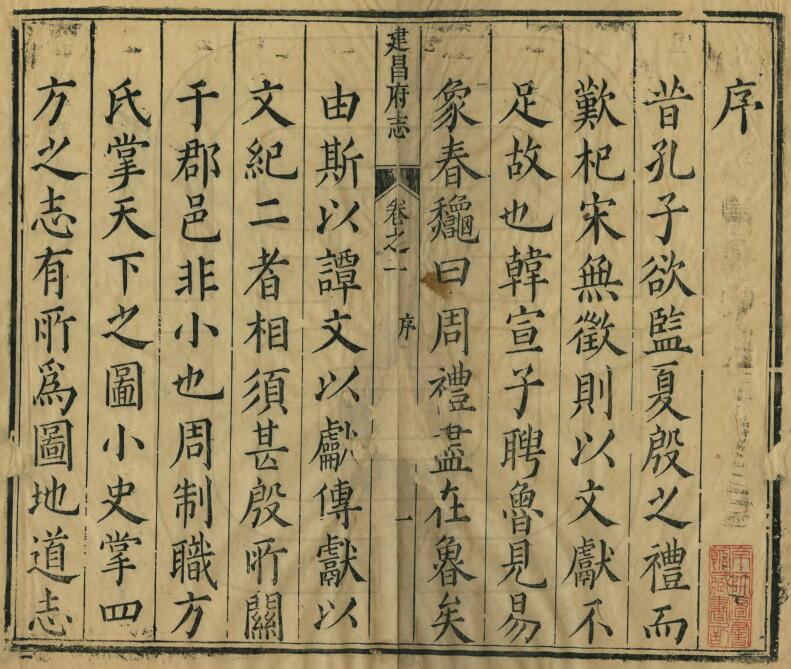 序
昔孔子欲監夏殷之禮而
歎杞宋無徵則以文獻不
足故也韓宣子聘魯見易
象春龝曰周禮盡在魯矣
建昌府志 卷之一 序 一
由斯以譚文以獻傳獻以
文紀二者相須甚殷所關
于郡邑非小也周制職方
氏掌天下之圖小史掌四
方之志有所爲圖地道志